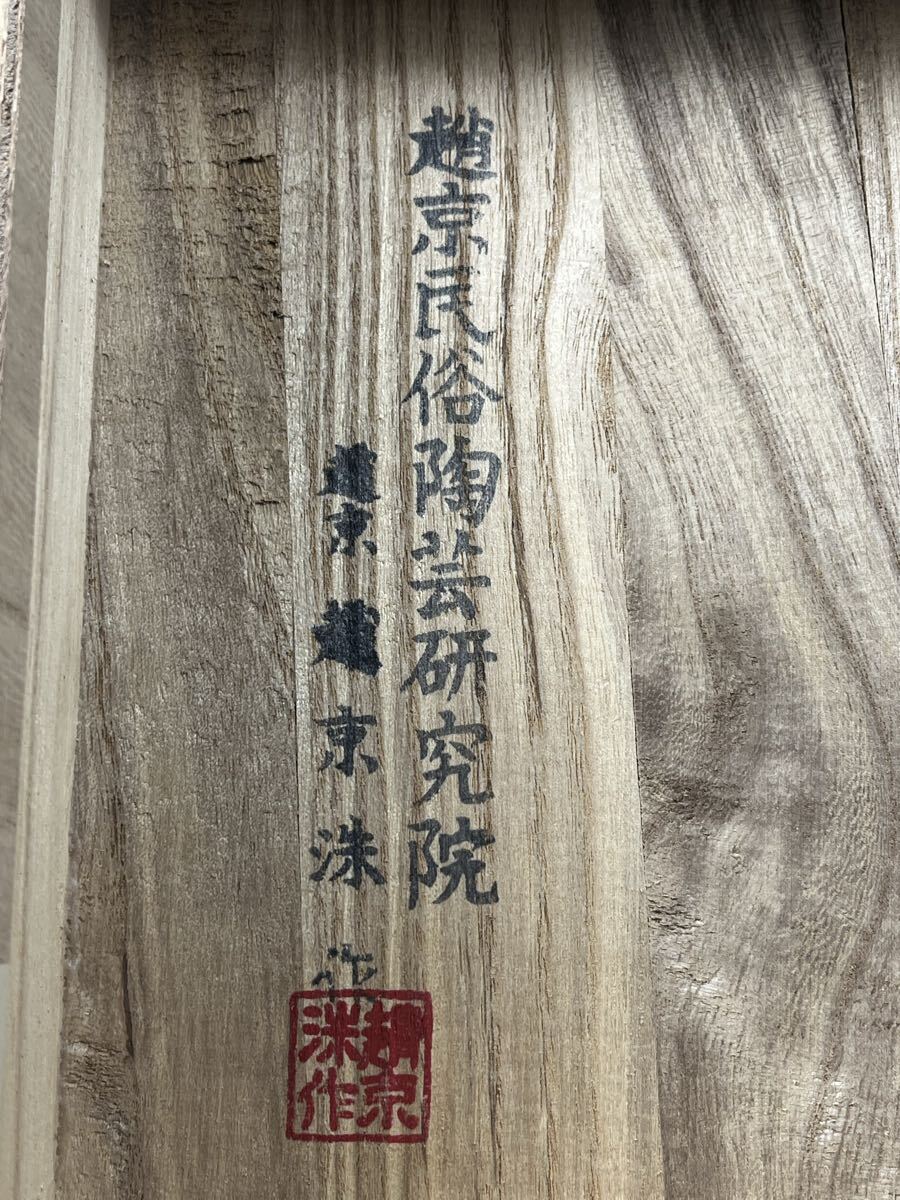 趙京民俗陶芸研究院
趙京 趙京洙 作
趙京
洙作